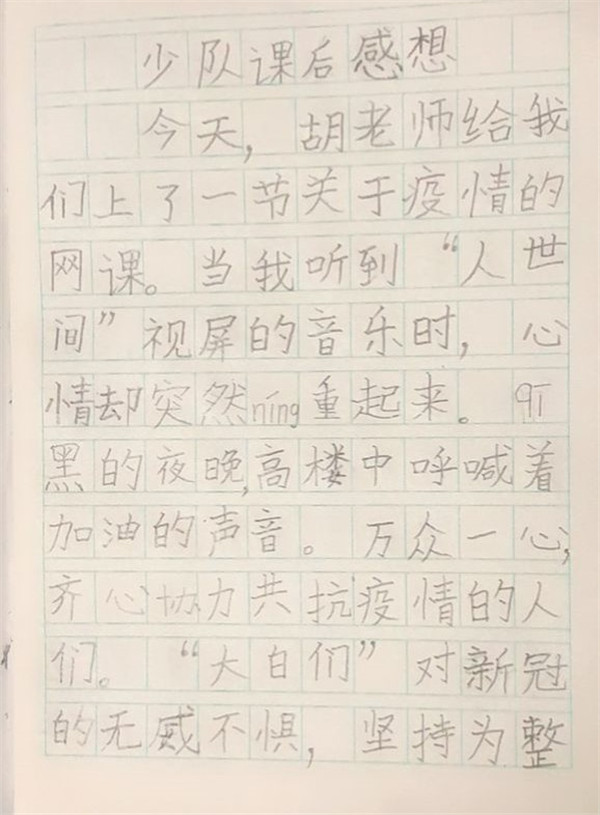 少队课后感想
今天，胡老师给我
们上了一节关于疫情的
网课。当我听到“人世
间”视屏的音乐时，心
情却突然níng重起来。qī
黑的夜晚，高楼中呼喊着
加油的声音。万众一心，
齐心协力共抗疫情的人
们。“大白们”对新冠
的无威不惧，坚持为整